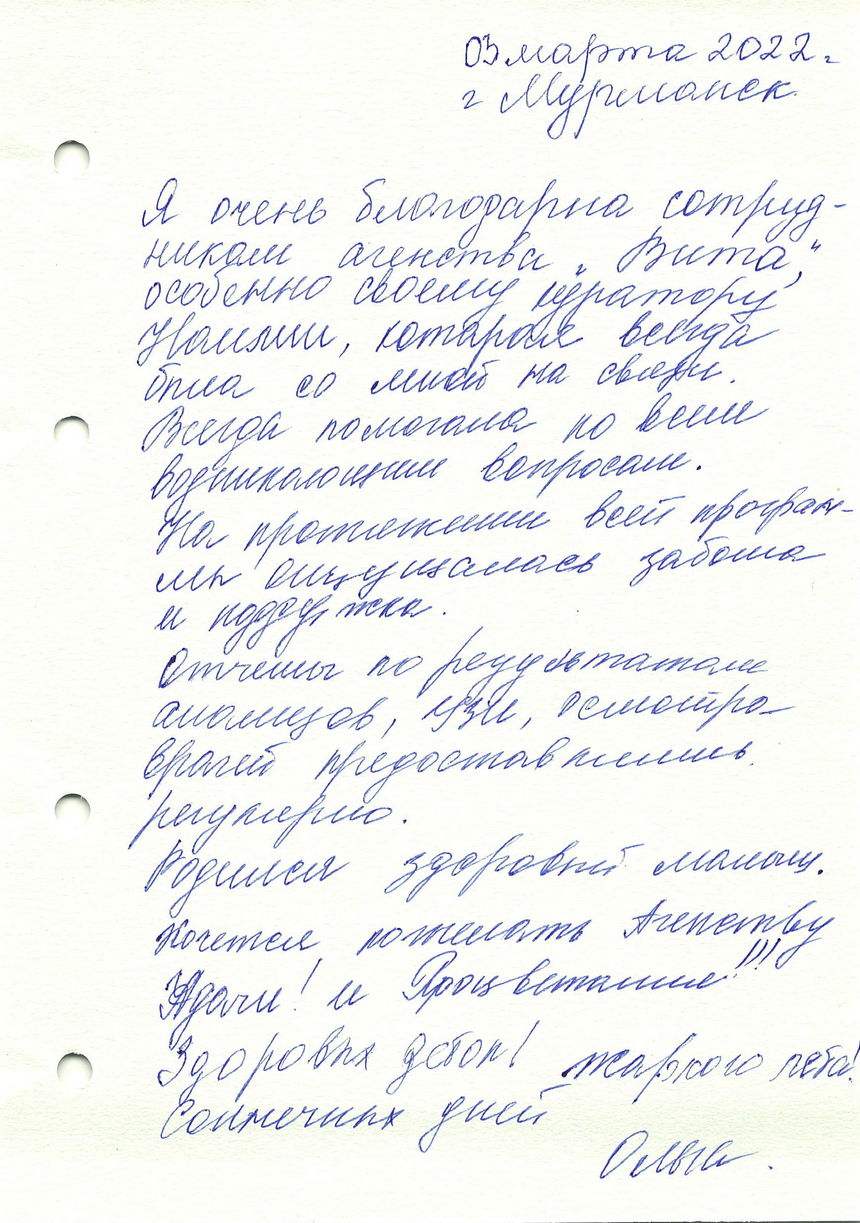 03 марта 2022 г
г Мурманск.
Я очень благодарна сотруд-
никам агенства „Вита”,
особенно своему куратору
которая всегда
была со мной на связи.
Всегда помогала по всем
возникающим вопросам.
На протяжении всей програм-
мы ощущалась забота
и поддержка.
Отчеты по результатам
анализов, УЗИ, осмотра
врачей предоставлялись
регулярно.
Родился здоровый малыш.
Хочется пожелать Агенству
Удачи! и Процветания!!!
Здоровых деток! жаркого лета!
Солнечных дней
Ольга.